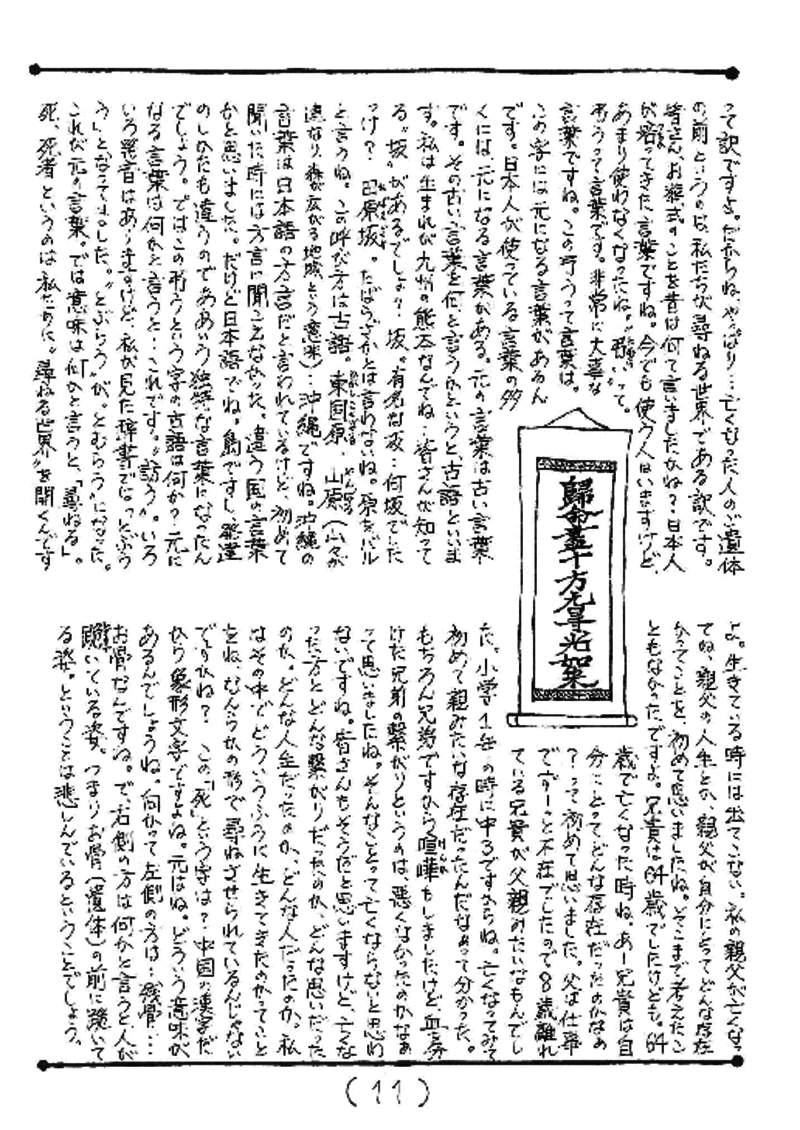 って訳ですよ。だからね、やっぱり…亡くなった人のご遺体
の前というのは、私たちが尋ねる世界である訳です。
皆さん、お葬式のことを昔は何て言いましたかね？日本人
が捨ててきた言葉ですね。今でも使う人はいますけど、
あまり使わなくなったね。“弔い”って。
弔うって言葉です。非常に大事な
言葉ですね。この弔うって言葉は。
この字には元になる言葉があるん
です。日本人が使っている言葉の多
くには、元になる言葉がある。元の言葉は古い言葉
です。その古い言葉を何と言うかというと古語といいま
す。私は生まれが九州の熊本なんでね…皆さんが知って
る“坂”があるでしょ？坂。有名な坂…何坂でした
っけ？田原坂。たばらざかとは言わないね。原をバル
と言うね。この呼び方は古語。東国原、山原（山々が
連なり森が広がる地域という意味）…沖縄ですね。沖縄の
言葉は日本語の方言だと言われているけど、初めて
聞いた時には方言に聞こえなかった、違う国の言葉
かと思いました。だけど日本語でね。島ですし、発達
のしかたも違うのでああいう独特な言葉になったん
でしょう。ではこの弔うという字の古語は何か？元に
なる言葉は何かと言うと…これです。“訪う”。いろ
いろ発音はありますけど、私が見た辞書では「とぶら
う」となってました。“とぶらう”が“とむらう”になった。
これが元の言葉。では意味は何かと言うと、「尋ねる」。
死、死者というのは私たちに“尋ねる世界”を開くんです
歸命盡十方无㝵光如来
よ。生きている時には出てこない。私の親父が亡くなっ
てね、親父の人生とか、親父が自分にとってどんな存在
かってことを、初めて思いましたね。そこまで考えたこ
ともなかったですよ。兄貴は64歳でしたけども。64
歳で亡くなった時ね、あー兄貴は自
分にとってどんな存在だったのかなぁ
？って初めて思いました。父は仕事
でずーっと不在でしたので8歳離れ
ている兄貴が父親みたいなもんでし
た。小学1年の時に中3ですからね。亡くなってみて
初めて親みたいな存在だったんだなぁって分かった。
もちろん兄弟ですから喧嘩もしましたけど、血を分
けた兄弟の繋がりというのは、悪くなかったのかなぁ
って思いましたね。そんなことって亡くならないと思わ
ないですね。皆さんもそうだと思いますけど、亡くな
った方とどんな繋がりだったのか、どんな思いだった
のか。どんな人生だったのか、どんな人だったのか。私
はその中でどういうふうに生きてきたのかってこと
をね、なんらかの形で尋ねさせられているんじゃない
ですかね？この「死」という字は？中国の漢字だ
から象形文字ですよね。元はね。どういう意味が
あるんでしょうね。何かって左側の方は…残骨…
お骨なんですね。で、右側の方は何かと言うと、人が
跪いている姿。つまりお骨（遺体）の前に跪いて
る姿。ということは悲しんでいるということでしょう。
(11)